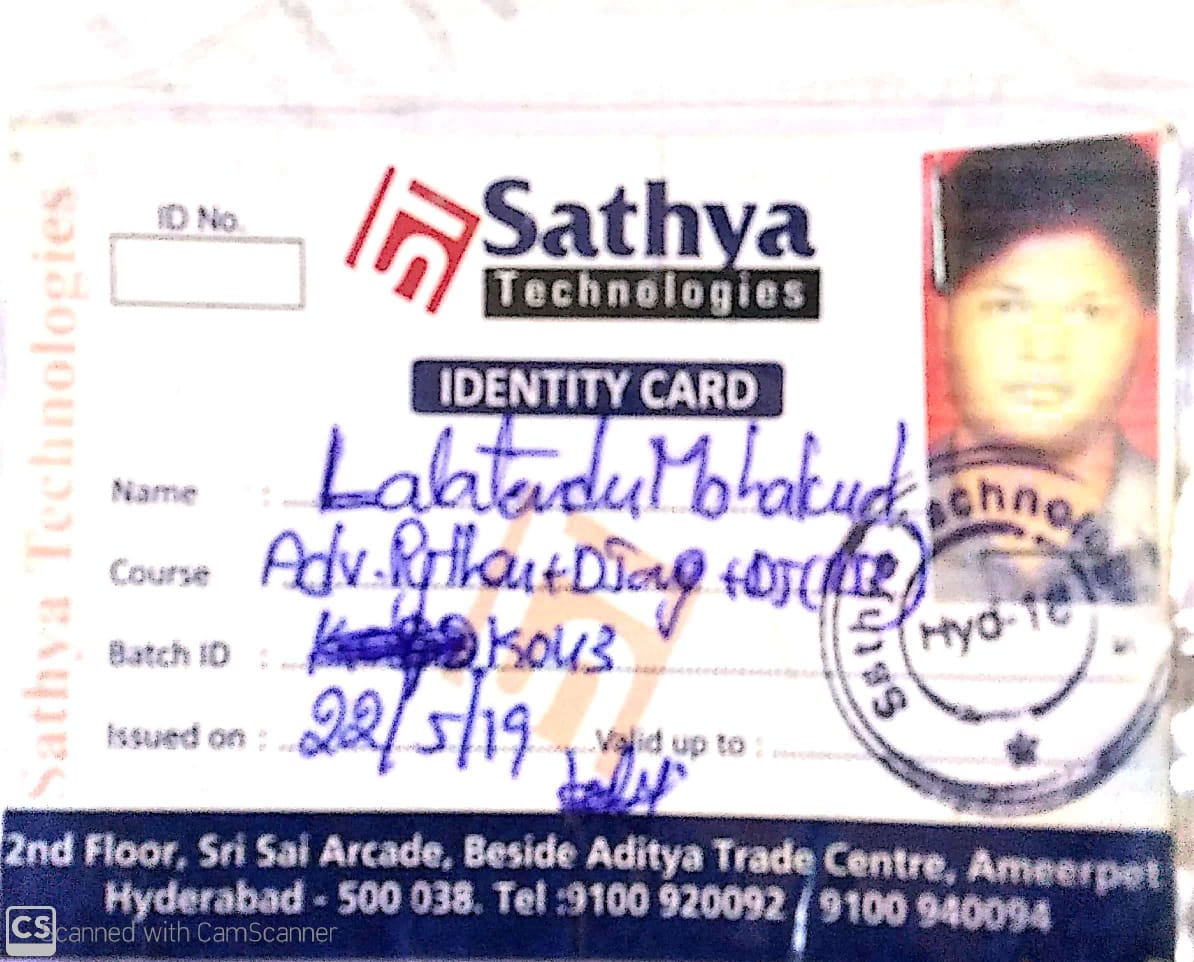 Sathya Technologies
ID No.
Sathya
Technologies
IDENTITY CARD
Name : Lalatendu Mohakud
Course : Adv. Python + DJang + DJ(
Batch ID : K043
Issued on : 22/5/19 Valid up to :
Sathya Technologies
Hyd-16
2nd Floor, Sri Sai Arcade, Beside Aditya Trade Centre, Ameerpet
Hyderabad - 500 038. Tel :9100 920092 / 9100 940094
CS canned with CamScanner